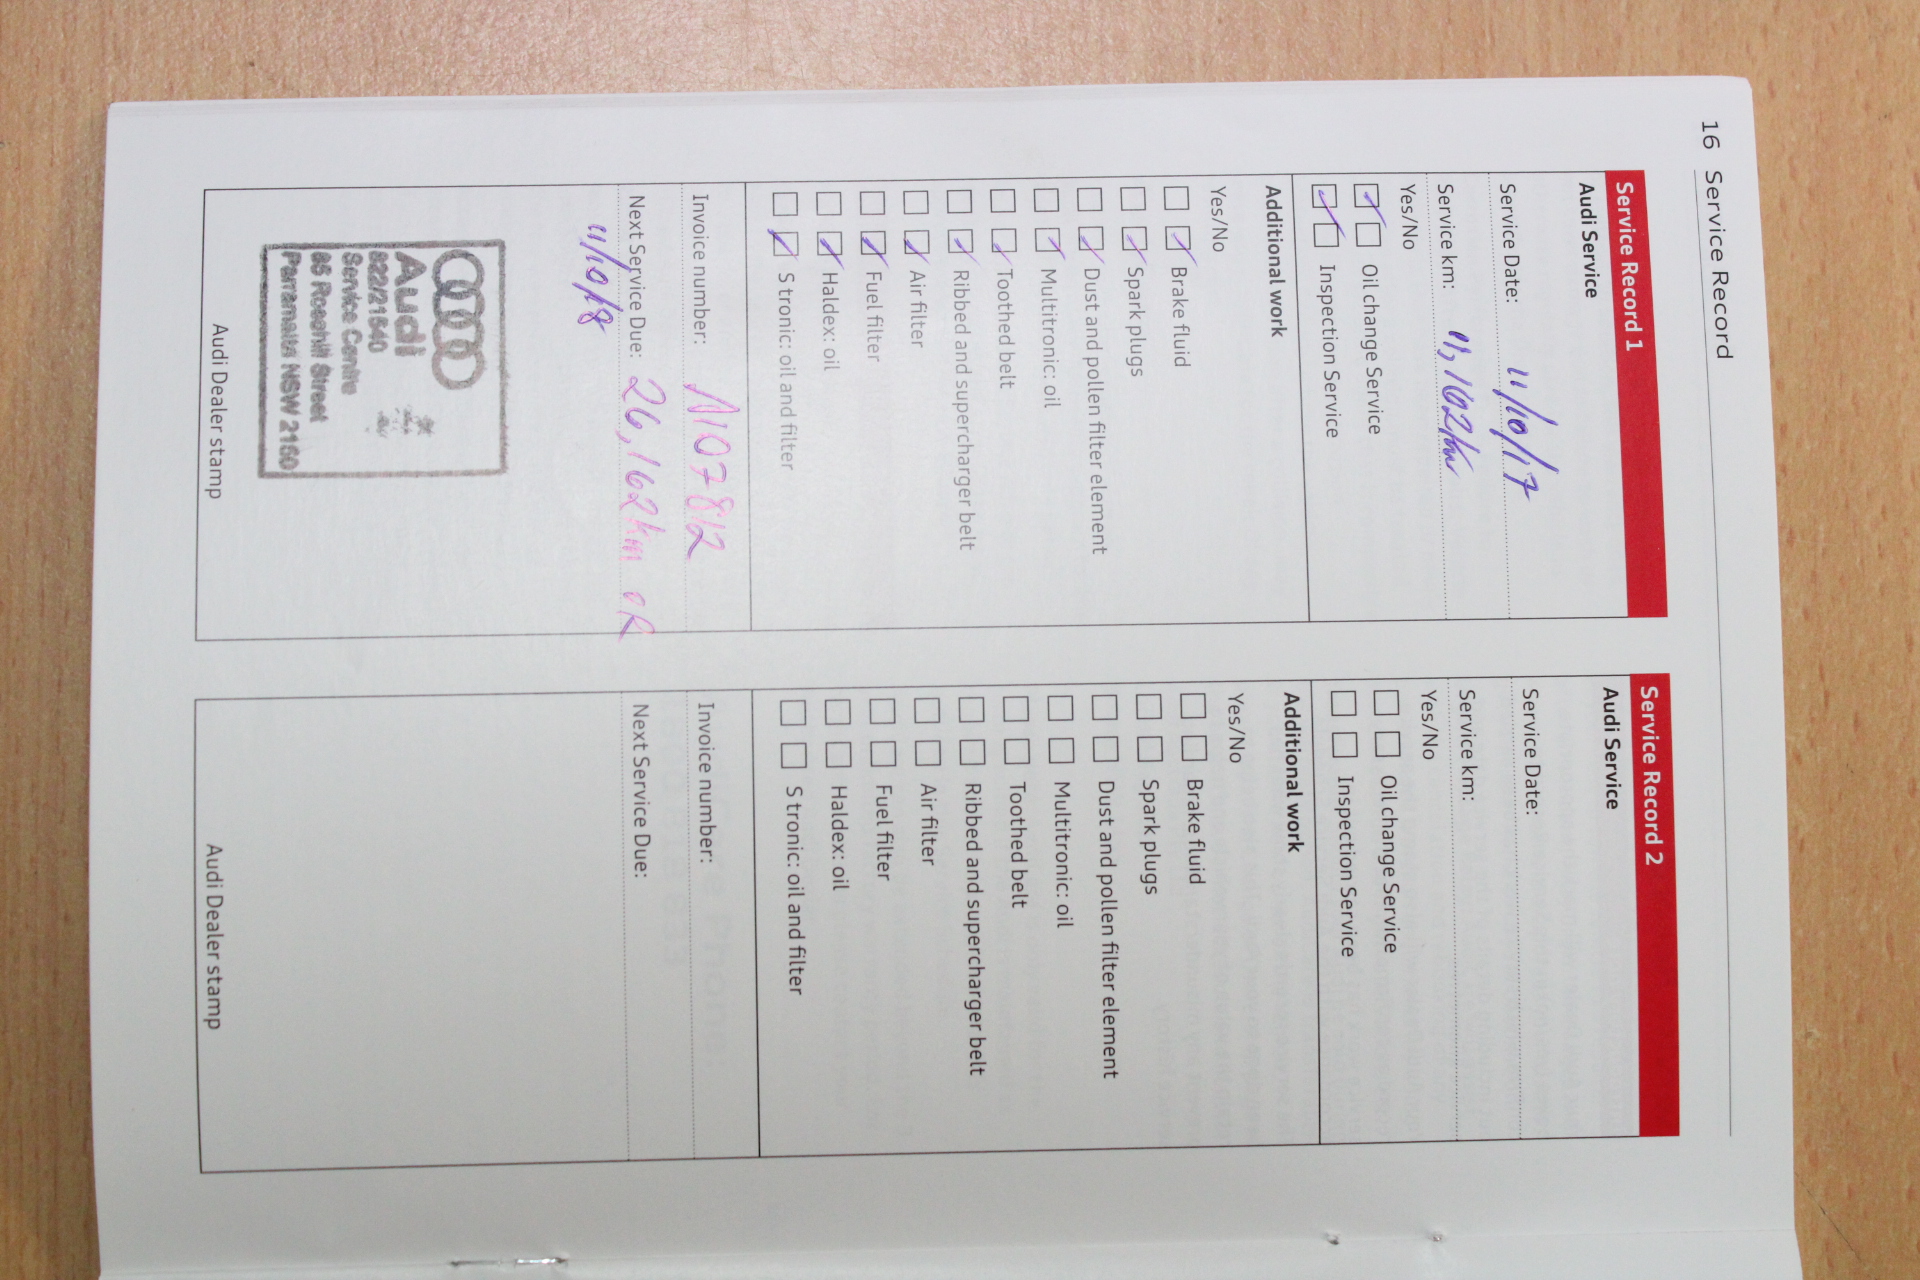 16 Service Record
Service Record 1
Audi Service
Service Date: 11/10/17
Service km: 11,162km
Yes/No
Oil change Service
Inspection Service
Additional work
Yes/No
Brake fluid
Spark plugs
Dust and pollen filter element
Multitronic: oil
Toothed belt
Ribbed and supercharger belt
Air filter
Fuel filter
Haldex: oil
S tronic: oil and filter
Invoice number: A107812
Next Service Due: 26,162km OR
11/10/18
Audi
822/21540
Service Centre
85 Rosehill Street
Parramatta NSW 2150
Audi Dealer stamp
Service Record 2
Audi Service
Service Date:
Service km:
Yes/No
Oil change Service
Inspection Service
Additional work
Yes/No
Brake fluid
Spark plugs
Dust and pollen filter element
Multitronic: oil
Toothed belt
Ribbed and supercharger belt
Air filter
Fuel filter
Haldex: oil
S tronic: oil and filter
Invoice number:
Next Service Due:
Audi Dealer stamp